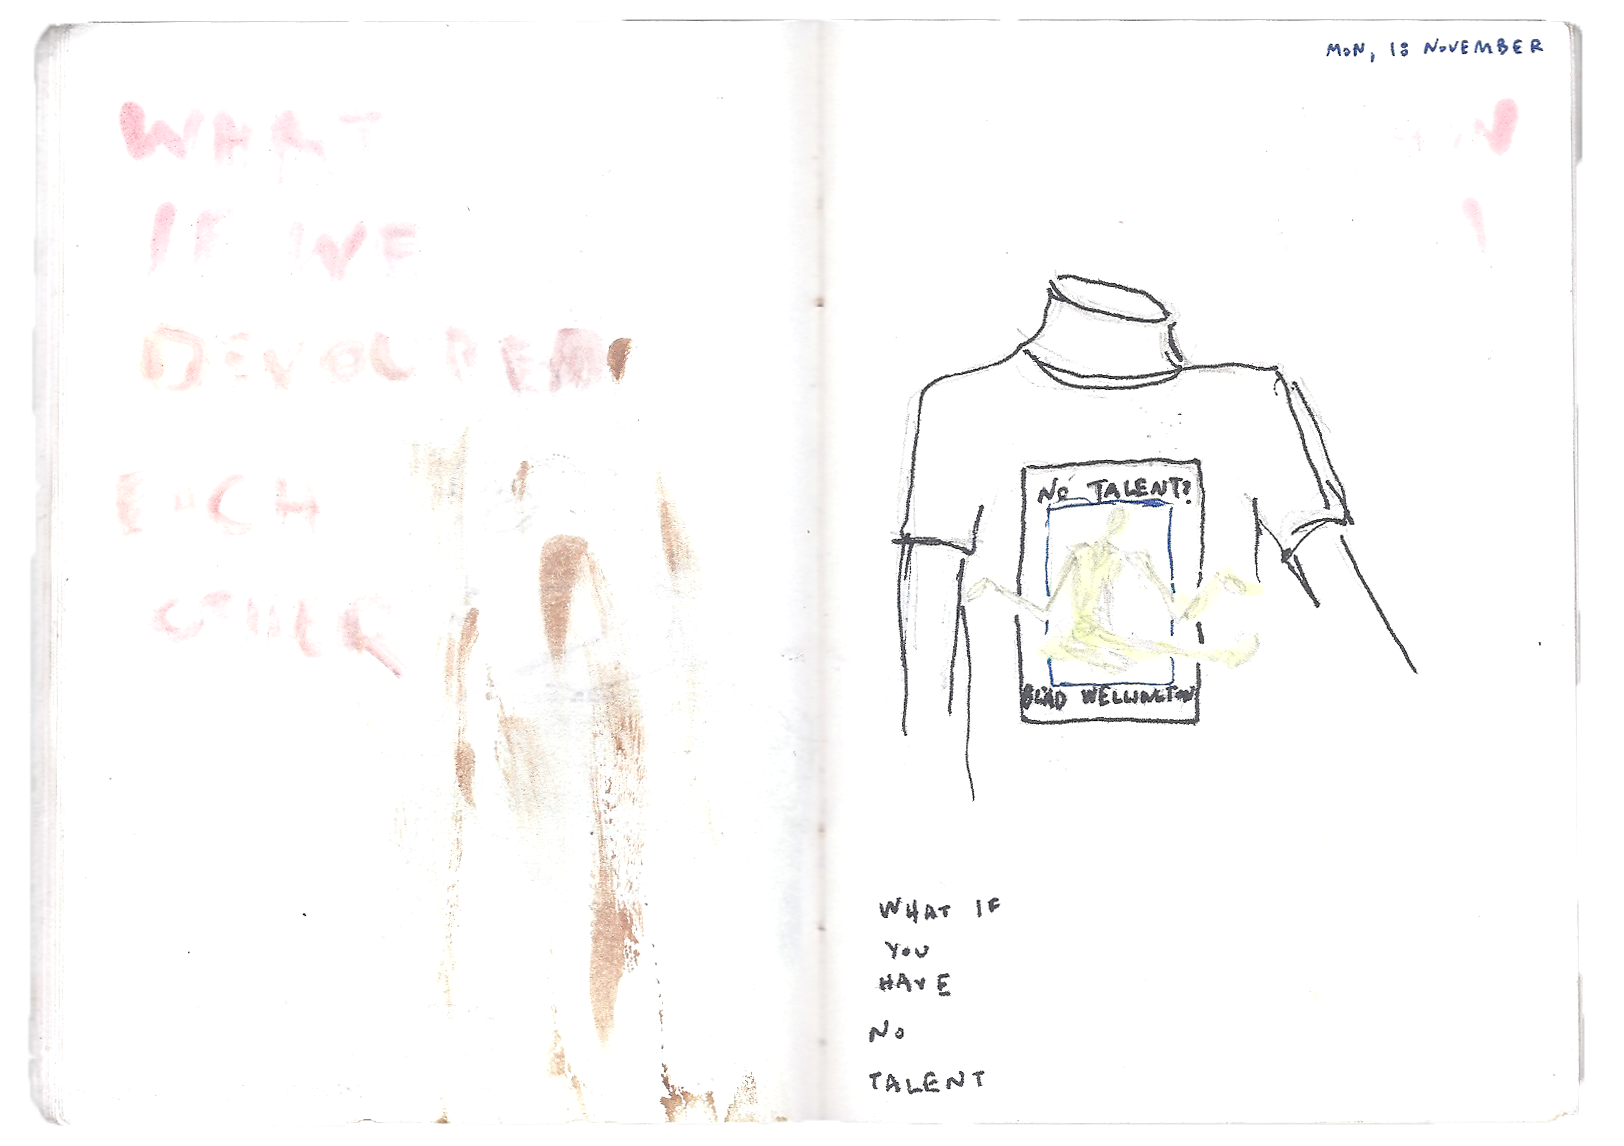 WHAT
IF WE
DEVOURED
EACH
OTHER
MON, 18 NOVEMBER
NO TALENT?
WELLINGTON
WHAT IF
YOU
HAVE
NO
TALENT